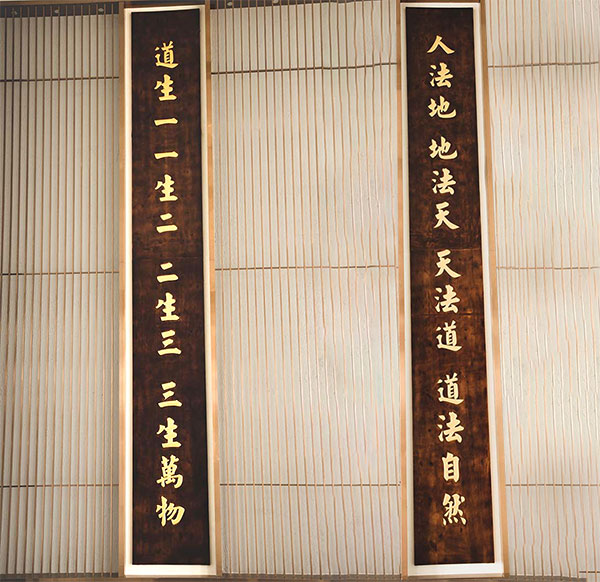 人法地 地法天 天法道 道法自然
道生一 一生二 二生三 三生萬物